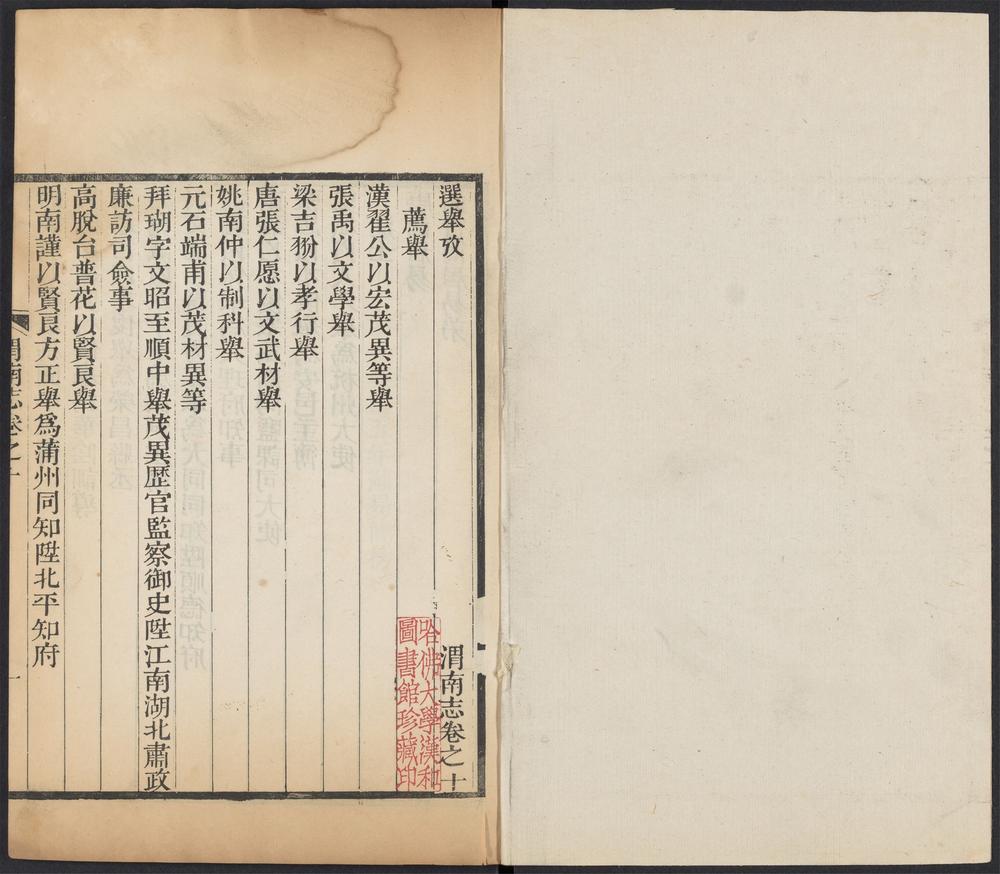 選舉攷 渭南志卷之十
薦舉
漢翟公以宏茂異等舉
張禹以文學舉
梁吉翂以孝行舉
唐張仁愿以文武材舉
姚南仲以制科舉
元石端甫以茂材異等
拜瑚字文昭至順中舉茂異歴官監察御史陞江南湖北肅政
廉訪司僉事
高脫台普花以賢良舉
明南謹以賢良方正舉爲蒲州同知陞北平知府
渭南志卷之十
一
哈佛大學漢和
圖書館珍藏印